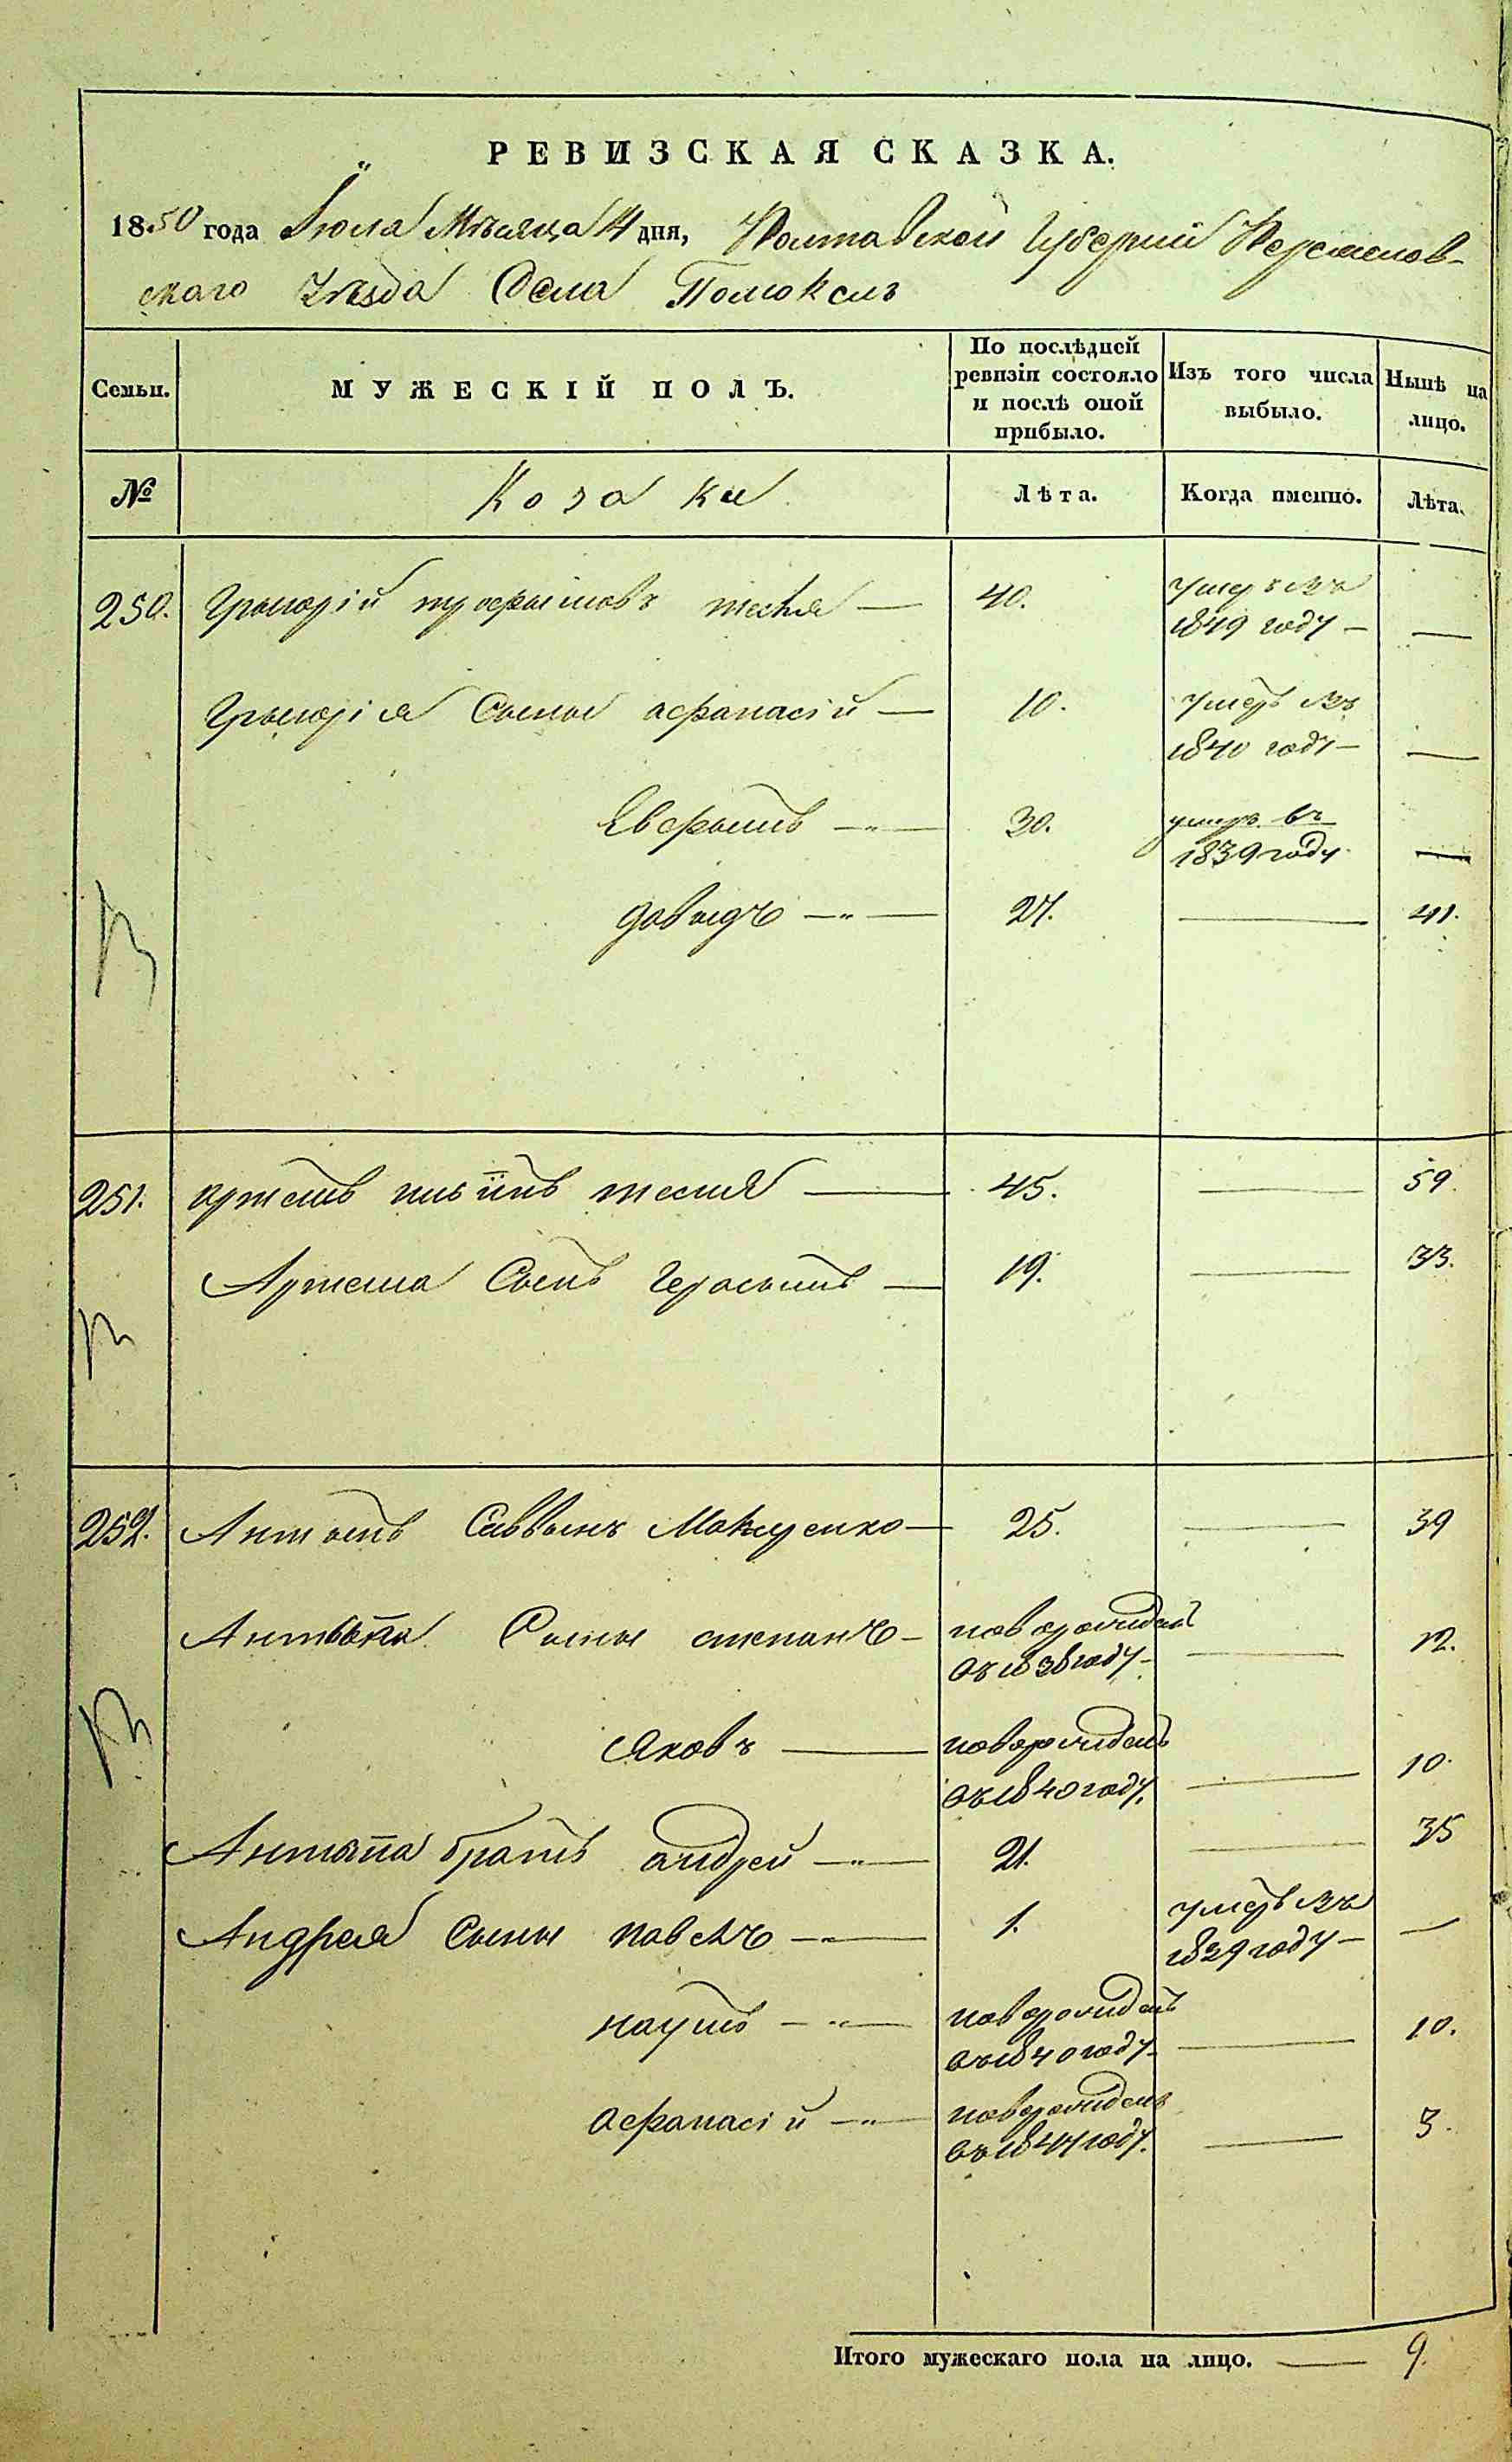 РЕВИЗСКАЯ СКАЗКА.
1850 года Іюля Мѣсяца 14 дня, Полтавской Губерніи Переяслов-
скаго Уѣзда Села Помоклъ
Семьи.
МУЖЕСКІЙ ПОЛЪ.
По послѣдней
ревизіи состояло
и послѣ оной
прибыло.
Изъ того числа
выбыло.
Нынѣ на
лицо.
№
Козаки
Лѣта.
Когда именно.
Лѣта.
250. Григорій тесля — 40. умеръ въ
1849 году — —
Григорія Сыны афанасій — 10. умеръ въ
1840 году — —
— 30. умеръ въ
1839 году —
давидъ — " — 27. — 41.
251. артемъ тесля — 45. — 59.
Артема Сынъ Герасимъ — 19. — 33.
252. Антонъ Саввинъ — 25. — 39
Антона Сыны степанъ — новорожденъ
въ 1838 году — — 12.
Яковъ — новорожденъ
въ 1840 году. — 10.
Антона братъ андрей — " — 21. — 35
Андрея Сыны павелъ — " — 1. умеръ въ
1839 году — —
наумъ — " — новорожденъ
въ 1840 году — — 10.
афанасій — " — новорожденъ
въ году. —
Итого мужескаго пола на лицо. — 9.